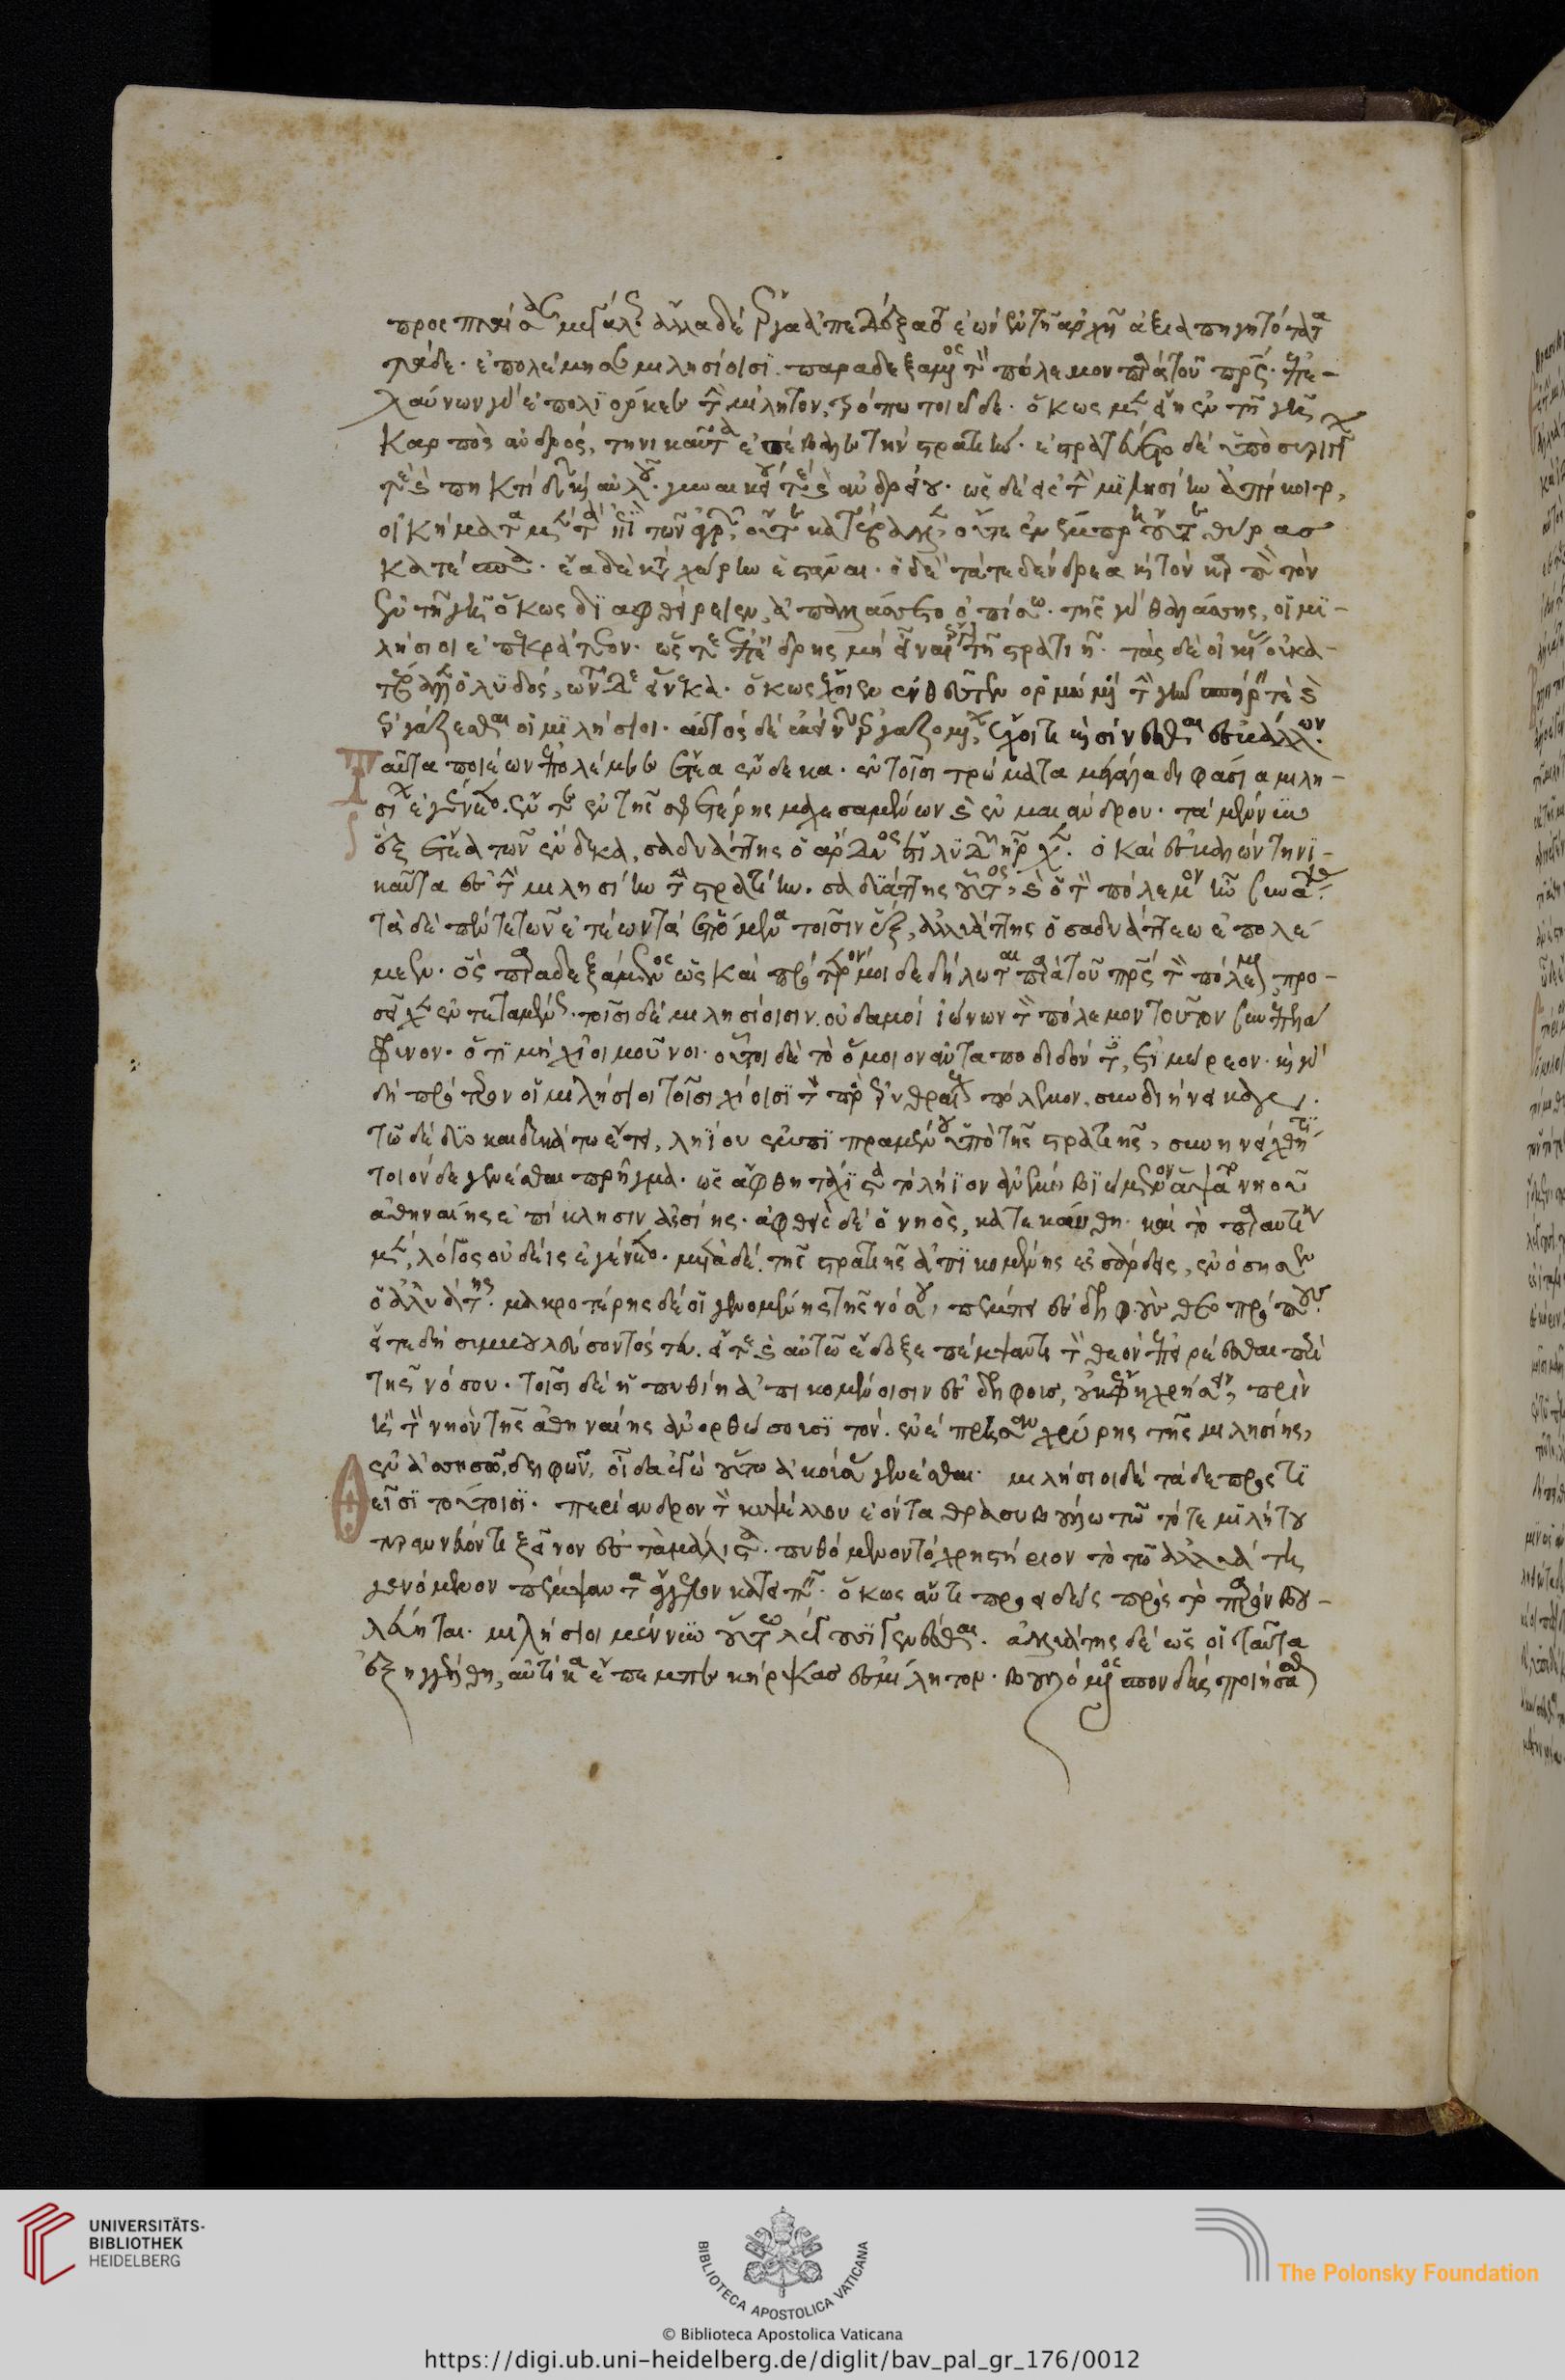 προσπταίσας μεγάλως. ἄλλα δὲ ἔργα ἀπεδέξατο ἐὼν ἐν τῆ ἀρχῆ ἀξιαπηγητότατα
τάδε. ἐπολέμησε μιλησίοισι. παραδεξάμενος τὸν πόλεμον παρὰ τοῦ πατρός. ἐπε-
λαύνων γὰρ ἐπολιόρκεε τὴν μίλητον, τρόπω τοιῶδε. ὅκως μὲν εἴη ἐν τῆ γῆ
καρπὸς ἁνδρός, τηνικαῦτα ἐσέβαλλε τὴν στρατιήν. ἐστρατεύετο δὲ ὑπὸ συρίγγων
τε καὶ πηκτίδων καὶ αὐλοῦ. γυναικηΐου τε καὶ ἀνδρηΐου. ὡς δὲ ἐς τὴν μιλησίην ἀπίκοιτο,
οἰκήματα μὲν τὰ ἐπὶ τῶν ἀγρῶν, οὔτε κατέβαλλεν, οὔτε ἐνεπίμπρη οὔτε θύρας
κατέσπα. ἔα δὲ κατὰ χώρην ἑστάναι. ὁ δὲ τά τε δένδρεα καὶ τὸν καρπὸν τὸν
ἐν τῆ γῆ ὅκως διαφθείρειεν, ἀπαλλάσσετο ὀπίσω. τῆς γὰρ θαλάσσης, οἱ μι-
λήσιοι ἐπεκράτεον. ὥστε ἐπέδρης μὴ εἶναι ἔργον τῆ στρατιῆ. τὰς δὲ οἰκίας οὐ κα-
τέβαλλεν ὁ λυδός, τῶνδε εἵνεκα. ὅκως ἔχοιεν ἐνθεῦτεν ὁρμώμενοι τὴν γῆν σπείρειν τὲ καὶ
ἐργάζεσθαι οἱ μιλήσιοι. αὐτὸς δὲ ἐκείνων ἐργαζομένων, ἔχοι τι καὶ σίνεσθαι ἐσβάλλων.
Ταῦτα ποιέων ἐπολέμεε ἔτεα ἕνδεκα. ἐν τοῖσι τρώματα μεγάλα διφάσια μιλη-
σίων ἐγένετο. ἔν τε ἐν τῆς σφετέρης μαχεσαμένων καὶ ἐν μαιάνδρου. τὰ μέν νυν
ἓξ ἔτεα τῶν ἕνδεκα, σαδυάττης ὁ ἄρδυος ἔτι λυδῶν ἦρχεν. ὁ καὶ ἐσβαλὼν τηνι-
καῦτα ἐς τὴν μιλησίην τὴν στρατιήν. σαδυάττης οὗτος, καὶ ὁ τὸν πόλεμον ἦν συνάψας.
τὰ δὲ πέντε τῶν ἐτέων τὰ ἑπόμενα τοῖσιν ἓξ, ἀλυάττης ὁ σαδυάττεω ἐπολέ-
μεεν. ὃς παραδεξάμενος ὡς καὶ πρότερόν μοι δεδήλωται παρὰ τοῦ πατρός τὸν πόλεμον, προ-
σεῖχεν ἐντεταμένως. τοῖσι δὲ μιλησίοισιν οὐδαμοὶ ἰώνων τὸν πόλεμον τοῦτον συνεπελά-
φρυνον. ὅτι μὴ χῖοι μοῦνοι. οὗτοι δὲ τὸ ὅμοιον ἀνταποδιδόντες, ἐτιμώρεον. καὶ γὰρ
δὴ πρότερον οἱ μιλήσιοι τοῖσι χίοισι τὸν πρὸς ἐρυθραίους πόλεμον, συνδιήνεικαν.
τῶ δὲ δυωκαιδεκάτω ἔτει, ληΐου ἐμπιπραμένου ὑπὸ τῆς στρατιῆς, συνηνείχθη τι
τοιόνδε γενέσθαι πρῆγμα. ὡς ἅφθη τάχιστα τὸ λήϊον ἀνέμω βιώμενον ἅψατο νηοῦ
ἀθηναίης ἐπίκλησιν ἀσσησίης. ἀφθεὶς δὲ ὁ νηὸς, κατεκαύθη. καὶ τὸ παραυτίκα
μέν, λόγος οὐδεὶς ἐγένετο. μετὰ δὲ τῆς στρατιῆς ἀπικομένης ἐς σάρδις, ἐνόσησεν
ὁ ἀλυάττης. μακροτέρης δέ οἱ γινομένης τῆς νόσου, πέμπει ἐς δελφοὺς θεοπρόπους.
εἴτε δὴ συμβουλεύσαντός τευ. εἴτε καὶ αὐτῶ ἔδοξε πέμψαντι τὸν θεὸν ἐπειρέσθαι περὶ
τῆς νόσου. τοῖσι δὲ ἡ πυθίη ἀπικομένοισιν ἐς δελφοὺς, οὐκ ἔφη χρήσειν, πρὶν
ἢ τὸν νηὸν τῆς ἀθηναίης ἀνορθώσουσι τὸν ἐνέπρησαν χώρης τῆς μιλησίης,
ἐν ἀσσησῶ. δελφῶν, οἶδα ἐγὼ οὕτω ἀκούσας γενέσθαι. μιλήσιοι δὲ τάδε προστι-
θεῖσι τούτοισι. περίανδρον τὸν κυψέλου ἐόντα θρασυβούλω τῶ τότε μιλήτου
τυραννεύοντι ξεῖνον ἐς τὰ μάλιστα. πυθόμενον τὸ χρηστήριον τὸ τῶ ἀλυάττη
γενόμενον πέμψαντα ἄγγελον κατειπεῖν. ὅκως ἄν τι προειδὼς πρὸς τὸ παρεὸν βου-
λεύηται. μιλήσιοι μέν νυν οὕτω λέγουσι γενέσθαι. ἀλυάττης δὲ ὥς οἱ ταῦτα
ἐξηγγέλθη, αὐτίκα ἔπεμπε κήρυκας ἐς μίλητον. βουλόμενος σπονδὰς ποιήσασθαι
UNIVERSITÄTS-
BIBLIOTHEK
HEIDELBERG
BIBLIOTECA APOSTOLICA VATICANA
The Polonsky Foundation
© Biblioteca Apostolica Vaticana
https://digi.ub.uni-heidelberg.de/diglit/bav_pal_gr_176/0012